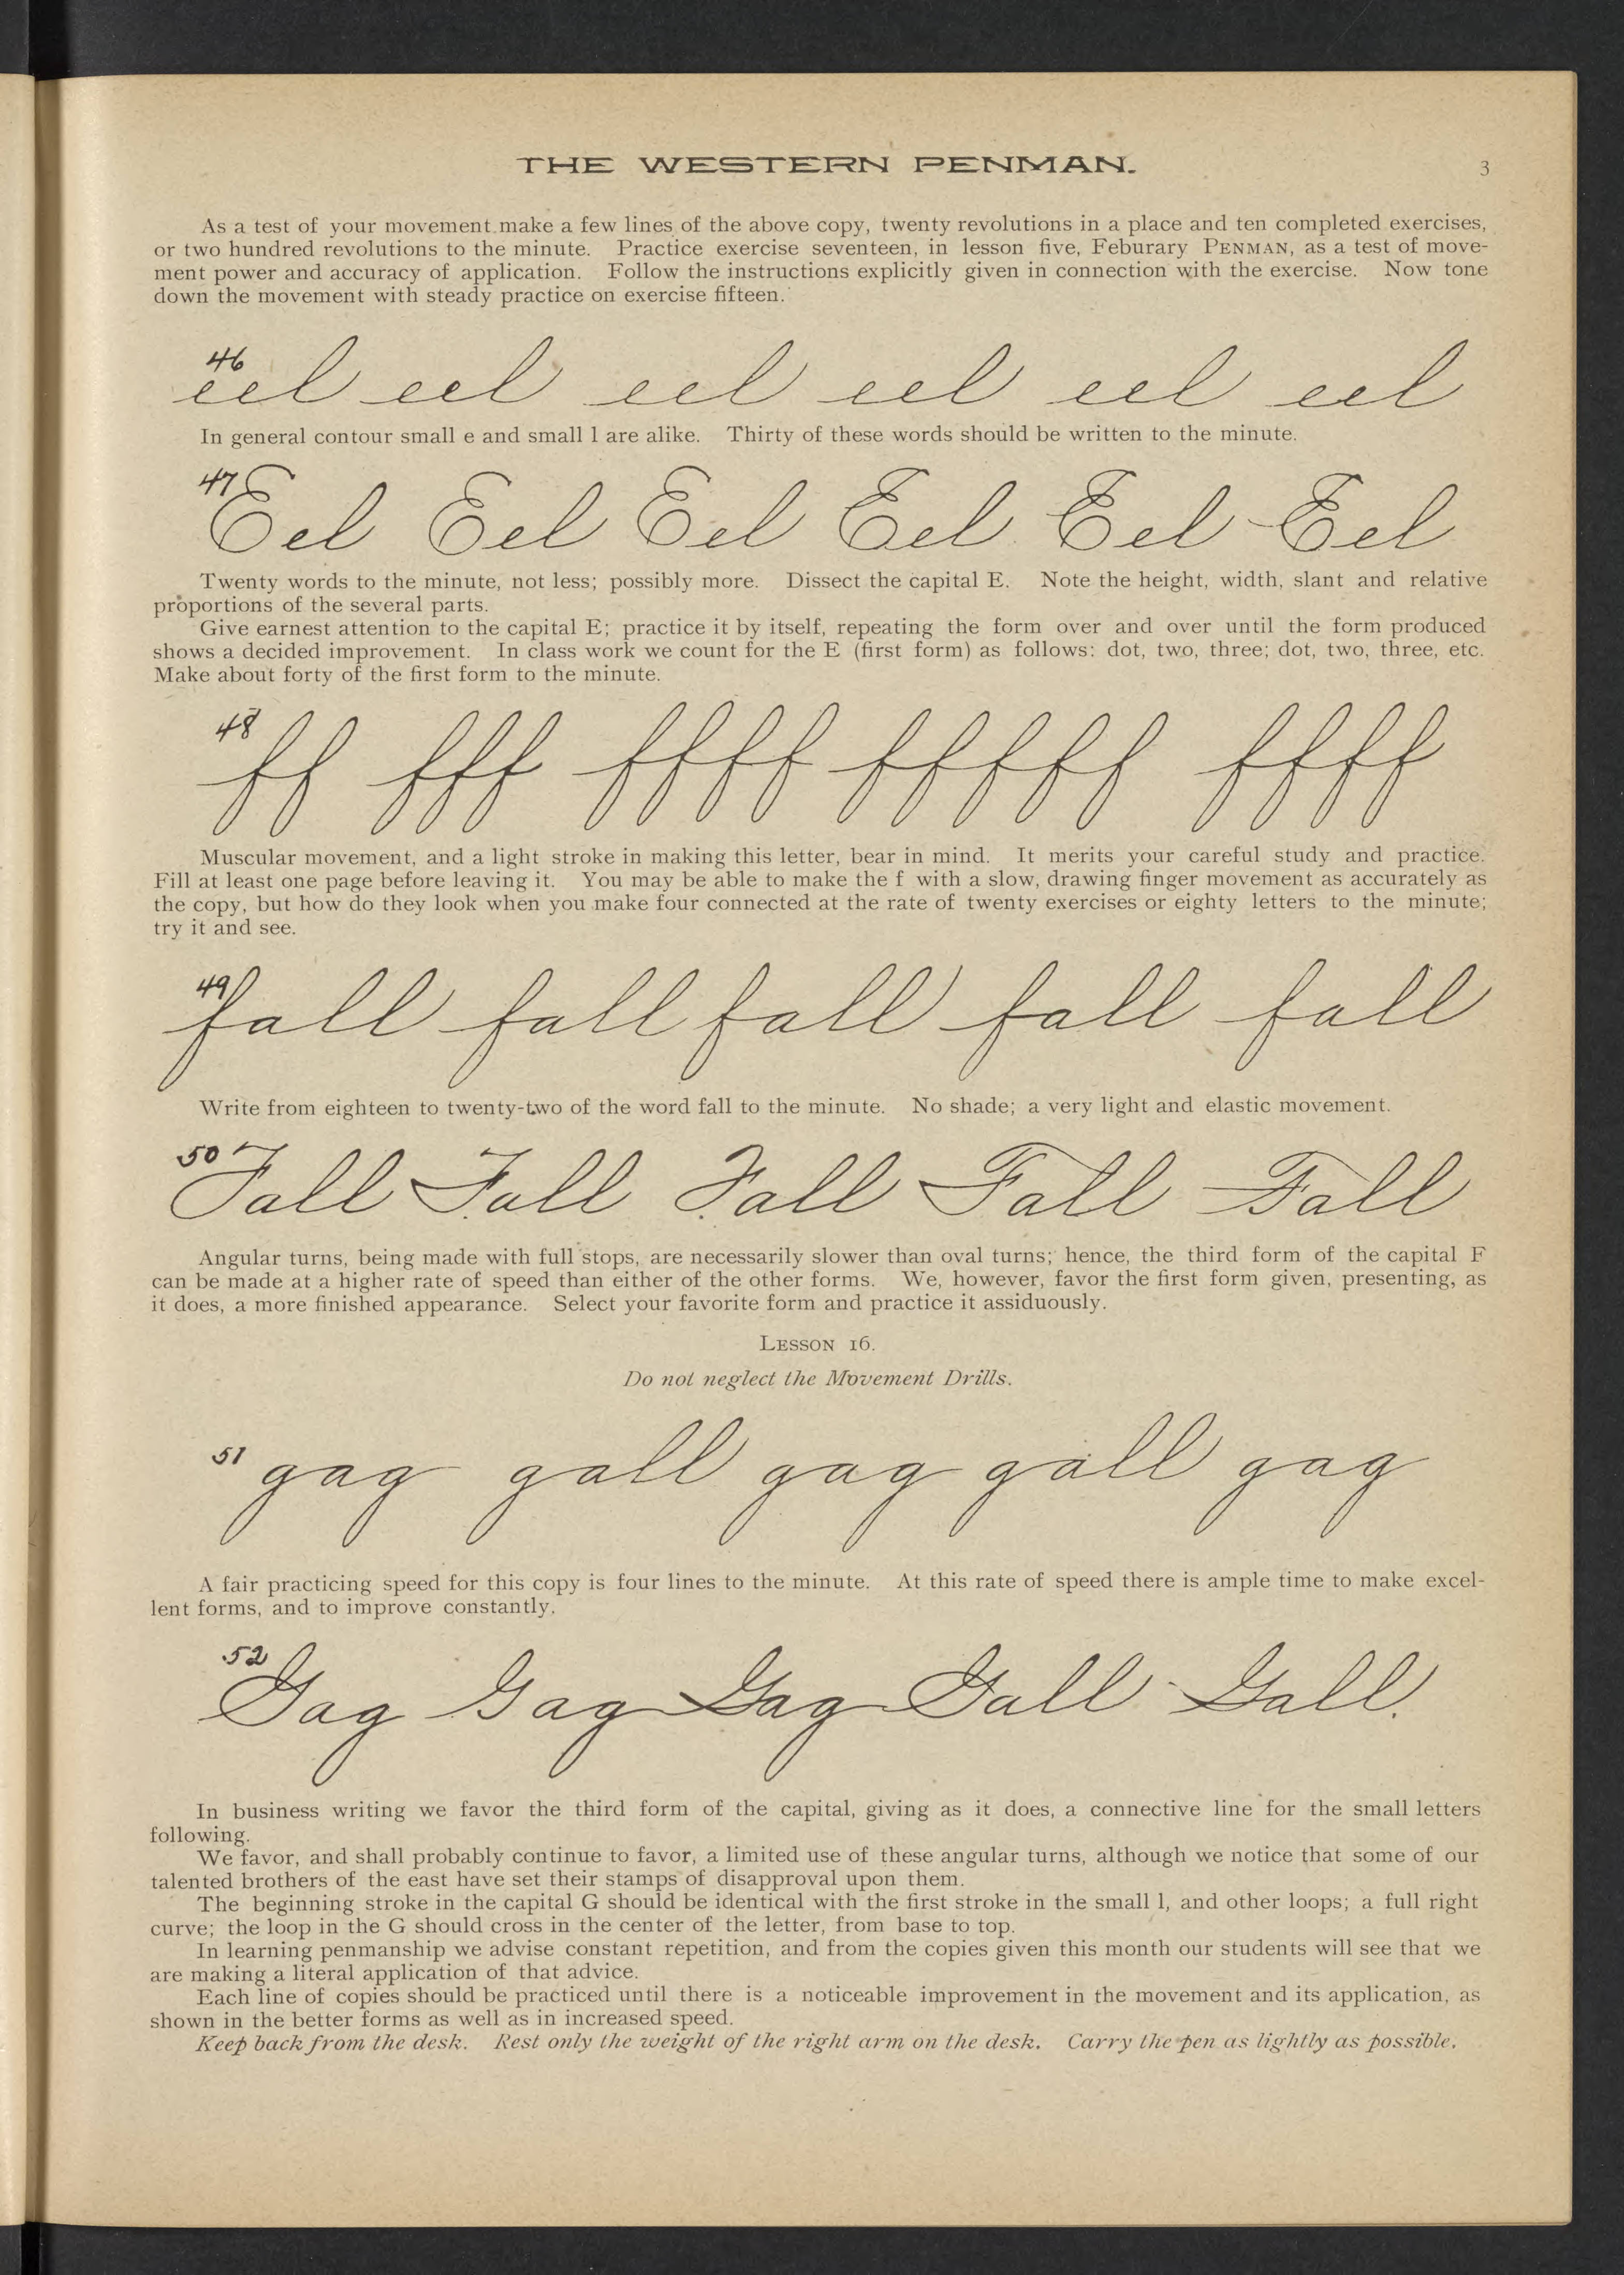 THE WESTERN PENMAN.
3
As a test of your movement make a few lines of the above copy, twenty revolutions in a place and ten completed exercises,
or two hundred revolutions to the minute. Practice exercise seventeen, in lesson five, Feburary PENMAN, as a test of move-
ment power and accuracy of application. Follow the instructions explicitly given in connection with the exercise. Now tone
down the movement with steady practice on exercise fifteen.
46
eel eel eel eel eel eel
In general contour small e and small l are alike. Thirty of these words should be written to the minute.
47
Eel Eel Eel Eel Eel Eel
Twenty words to the minute, not less; possibly more. Dissect the capital E. Note the height, width, slant and relative
proportions of the several parts.
Give earnest attention to the capital E; practice it by itself, repeating the form over and over until the form produced
shows a decided improvement. In class work we count for the E (first form) as follows: dot, two, three; dot, two, three, etc.
Make about forty of the first form to the minute.
48
ff fff ffff fffff ffff
Muscular movement, and a light stroke in making this letter, bear in mind. It merits your careful study and practice.
Fill at least one page before leaving it. You may be able to make the f with a slow, drawing finger movement as accurately as
the copy, but how do they look when you make four connected at the rate of twenty exercises or eighty letters to the minute;
try it and see.
49
fall fall fall fall fall
Write from eighteen to twenty-two of the word fall to the minute. No shade; a very light and elastic movement.
50
Fall Fall Fall Fall Fall
Angular turns, being made with full stops, are necessarily slower than oval turns; hence, the third form of the capital F
can be made at a higher rate of speed than either of the other forms. We, however, favor the first form given, presenting, as
it does, a more finished appearance. Select your favorite form and practice it assiduously.
LESSON 16.
Do not neglect the Movement Drills.
51
gag gall gag gall gag
A fair practicing speed for this copy is four lines to the minute. At this rate of speed there is ample time to make excel-
lent forms, and to improve constantly.
52
Gag Gag Gag Gall Gall.
In business writing we favor the third form of the capital, giving as it does, a connective line for the small letters
following.
We favor, and shall probably continue to favor, a limited use of these angular turns, although we notice that some of our
talented brothers of the east have set their stamps of disapproval upon them.
The beginning stroke in the capital G should be identical with the first stroke in the small l, and other loops; a full right
curve; the loop in the G should cross in the center of the letter, from base to top.
In learning penmanship we advise constant repetition, and from the copies given this month our students will see that we
are making a literal application of that advice.
Each line of copies should be practiced until there is a noticeable improvement in the movement and its application, as
shown in the better forms as well as in increased speed.
Keep back from the desk. Rest only the weight of the right arm on the desk. Carry the pen as lightly as possible.